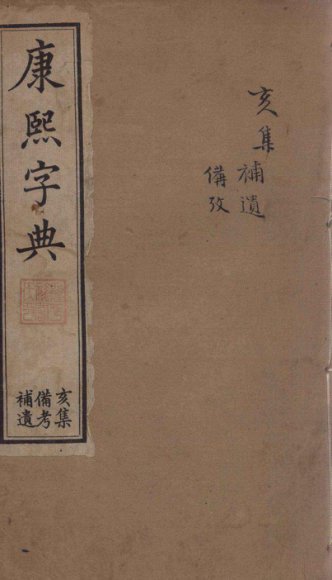 康熙字典
亥集
備考
補遺
亥集
補遺
備攷